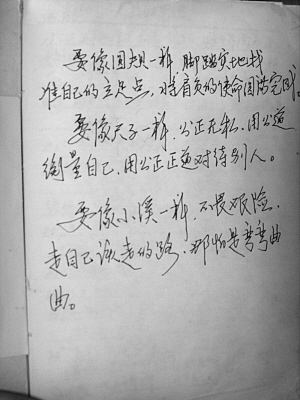 要像圆规一样,脚踏实地找
准自己的立足点,将肩负的使命圆满完成。
要像尺子一样,公正在私,用公道
衡量自己,用公正正道对待别人。
要像小溪一样,不畏艰险,
走自己该走的路,那怕是弯弯曲
曲。